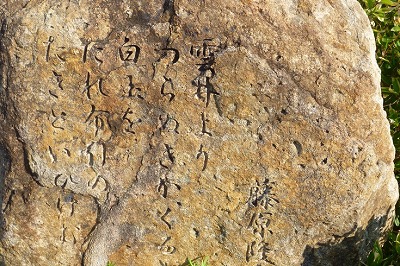 藤原隆
雲井より
つらぬきかくる
白玉を
たれ布引の
たきといひけむ